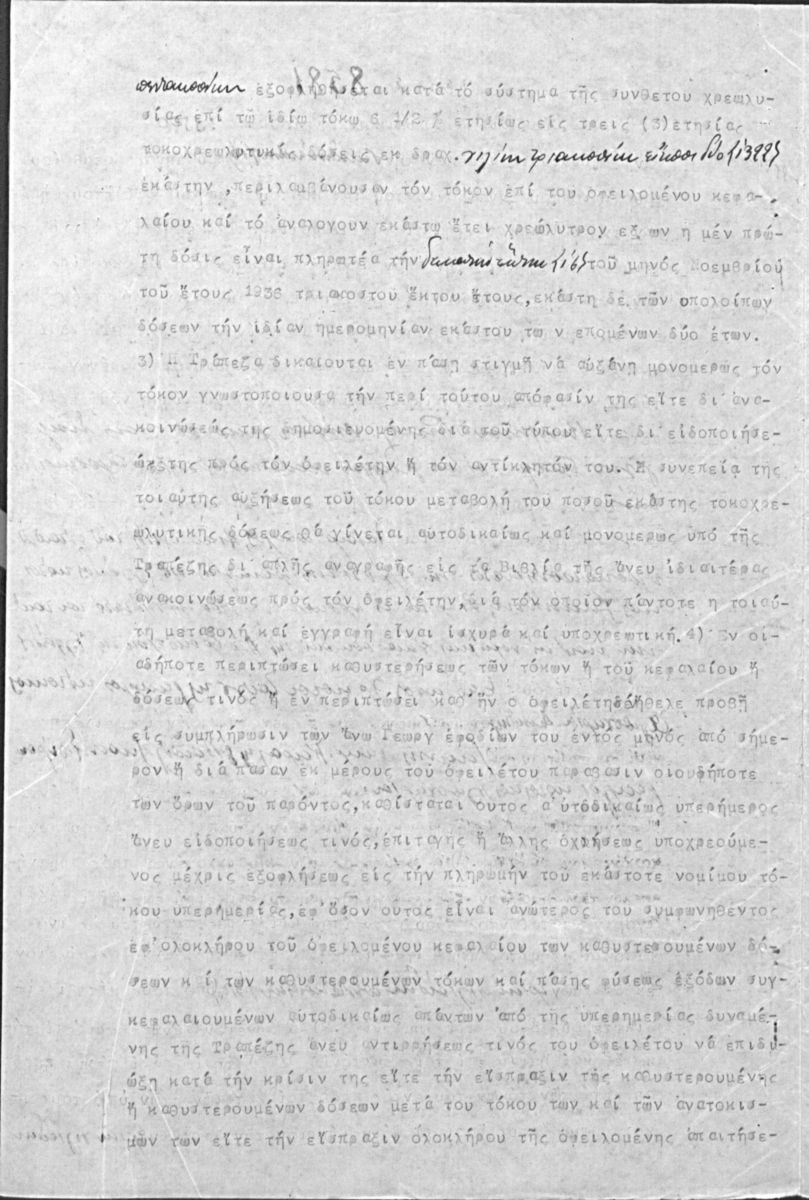 πεντακοσίων εξοφληθήσεται κατά τό σύστημα τῆς συνθέτου χρεωλυ-
σίας επί τῷ ἰδίῳ τόκῳ 6 1/2 % ετησίως εἰς τρεις (3) ετησίας
τοκοχρεωλυτικάς δόσεις εκ δραχ. χιλίων τριακοσίων εἴκοσι δύο (1322)
ἑκάστην, περιλαμβάνουσαν τόν τόκον ἐπί του ὀφειλομένου κεφα-
λαίου καί τό ἀναλογουν εκάστῳ ἔτει χρεώλυτρον εξ ων η μέν πρώ-
τη δόσις εἶναι πληρωτέα τήν (15) τοῦ μηνός Νοεμβρίου
τοῦ ἔτους 1936 τριακοστοῦ ἕκτου ἔτους, εκάστη δέ τῶν υπολοίπων
δόσεων τήν ιδίαν ημερομηνίαν εκάστου τω ν επομένων δύο ἐτων.
3) Η Τράπεζα δικαίουται ἐν πάσῃ στιγμῇ νά αὐξάνῃ μονομερώς τόν
τόκον γνωστοποιουσα τήν περί τούτου απόφασίν της εἴτε δι' ἀνα-
κοινώσεώς της δημοσιευομένης διά τοῦ τύπου εἴτε δι' εἰδοποιήσε-
ώς της πρός τόν ὀφειλέτην ἤ τόν αντίκλητόν του. Η συνεπεία της
τοιαύτης αὐξήσεως τοῦ τόκου μεταβολή του ποσοῦ εκάστης τοκοχρε-
ωλυτικής δόσεως θά γίνεται αὐτοδικαίως καί μονομερως υπό τῆς
Τραπέζης δι' απλῆς αναγραφῆς εις τά Βιβλία τῆς ἄνευ ἰδιαιτέρας
ανακοινώσεως πρός τόν ὀφειλέτην, διά τόν οποίον πάντοτε η τοιαύ-
τη μεταβολή καί ἐγγραφή εἶναι ἰσχυρά καί υποχρεωτική. 4) Ἐν οἱ-
αδήποτε περιπτώσει καθυστερήσεως τῶν τόκων ἤ τοῦ κεφαλαίου ἤ
δόσεως τινός ἤ ἐν περιπτώσει καθ' ἥν ο ὀφειλέτης δέν ἤθελε προβῆ
εἰς συμπλήρωσιν τῶν ἄνω Γεωργ εφοδίων του ἐντός μηνός από σήμε-
ρον ἤ διά πᾶσαν ἐκ μέρους τοῦ ὀφειλέτου παράβασιν οιουδήποτε
τῶν ὅρων τοῦ παρόντος, καθίσταται οὗτος α ὐτοδικαίως υπερήμερος
ἄνευ ειδοποιήσεως τινός, ἐπιταγῆς ἤ ἄλλης ὀχλήσεως υποχρεούμε-
νος μέχρις εξοφλήσεως εἰς τήν πληρωμήν τοῦ εκάστοτε νομίμου τό-
κου υπερημερίας, ἐφ' ὅσον οὗτος εἶναι ἀνώτερος του συμφωνηθεντος
ἐφ' ολοκλήρου τοῦ ὀφειλομένου κεφαλαίου των καθυστερουμένων δό-
σεων κ ί τῶν καθυστερουμένων τόκων καί πάσης φύσεως ἐξόδων συγ-
κεφαλαιουμένων αὐτοδικαίως απάντων ἀπό τῆς υπερημερίας δυναμέ-
νης τῆς Τραπέζης ἄνευ αντιρρήσεως τινός του ὀφειλέτου νά ἐπιδι-
ώξῃ κατά τήν κρίσιν της εἴτε τήν εἴσπραξιν τῆς καθυστερουμένης
ἤ καθυστερουμένων δόσεων μετά του τόκου τῶν καί τῶν ἀνατοκισ-
μῶν τῶν εἴτε τήν εἴσπραξιν ολοκλήρου τῆς ὀφειλομένης ἀπαιτήσε-